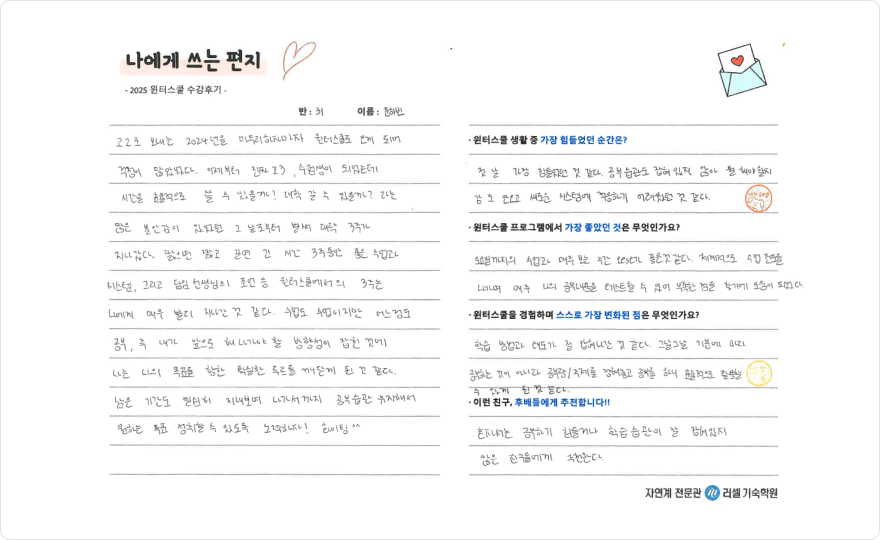 나에게 쓰는 편지
- 2025 윈터스쿨 수강후기 -
반 : 이름 :
고2로 보내는 2024년을 마무리하자마자 윈터스쿨로 오게 되어
걱정이 많았었다. 이제부터 진짜 고3, 수험생이 되었는데
시간을 효율적으로 쓸 수 있을까? 대학 갈 수 있을까? 라는
많은 불안감이 있었던 그 날로부터 벌써 대략 3주가
지나갔다. 짧으면 짧고 길면 긴 시간 3주동안 좋은 수업과
시스템, 그리고 담임선생님의 조언 등 윈터스쿨에서의 3주는
나에게 매우 빨리 지나간 것 같다. 수업도 수업이지만 어느정도
공부, 즉 내가 앞으로 해나가야 할 방향성이 잡힌 것에
나는 나의 목표를 향한 확실한 루트를 깨닫게 된 것 같다.
남은 기간도 열심히 지내보며 나가서까지 공부습관 유지해서
원하는 목표 성취할 수 있도록 노력하자! 화이팅^^
· 윈터스쿨 생활 중 가장 힘들었던 순간은?
첫 날 가장 힘들었던 것 같다. 공부습관도 잡혀 있지 않아 뭘 해야할지
감도 안오고 새로운 시스템에 적응하기 어려웠던 것 같다.
· 윈터스쿨 프로그램에서 가장 좋았던 것은 무엇인가요?
수업과 매주 보는 주간 test가 좋은것 같다. 체계적으로 수업
나가며 매주 나의 공부내용을 테스트할 수 있어 부족한 점을 찾기에 도움이 되었다.
· 윈터스쿨을 경험하며 스스로 가장 변화된 점은 무엇인가요?
학습 방법과 태도가 잘 잡혀나간 것 같다. 그날그날 기분에 따라
공부하는 것이 아니라 공부량/주제를 정해놓고 공부를 하니 효율적으로
수 있게 된 것 같다.
· 이런 친구, 후배들에게 추천합니다!!
혼자서는 공부하기 힘들거나 학습습관이 잘 잡혀있지
않은 친구들에게 추천한다.
자연계 전문관 러셀 기숙학원